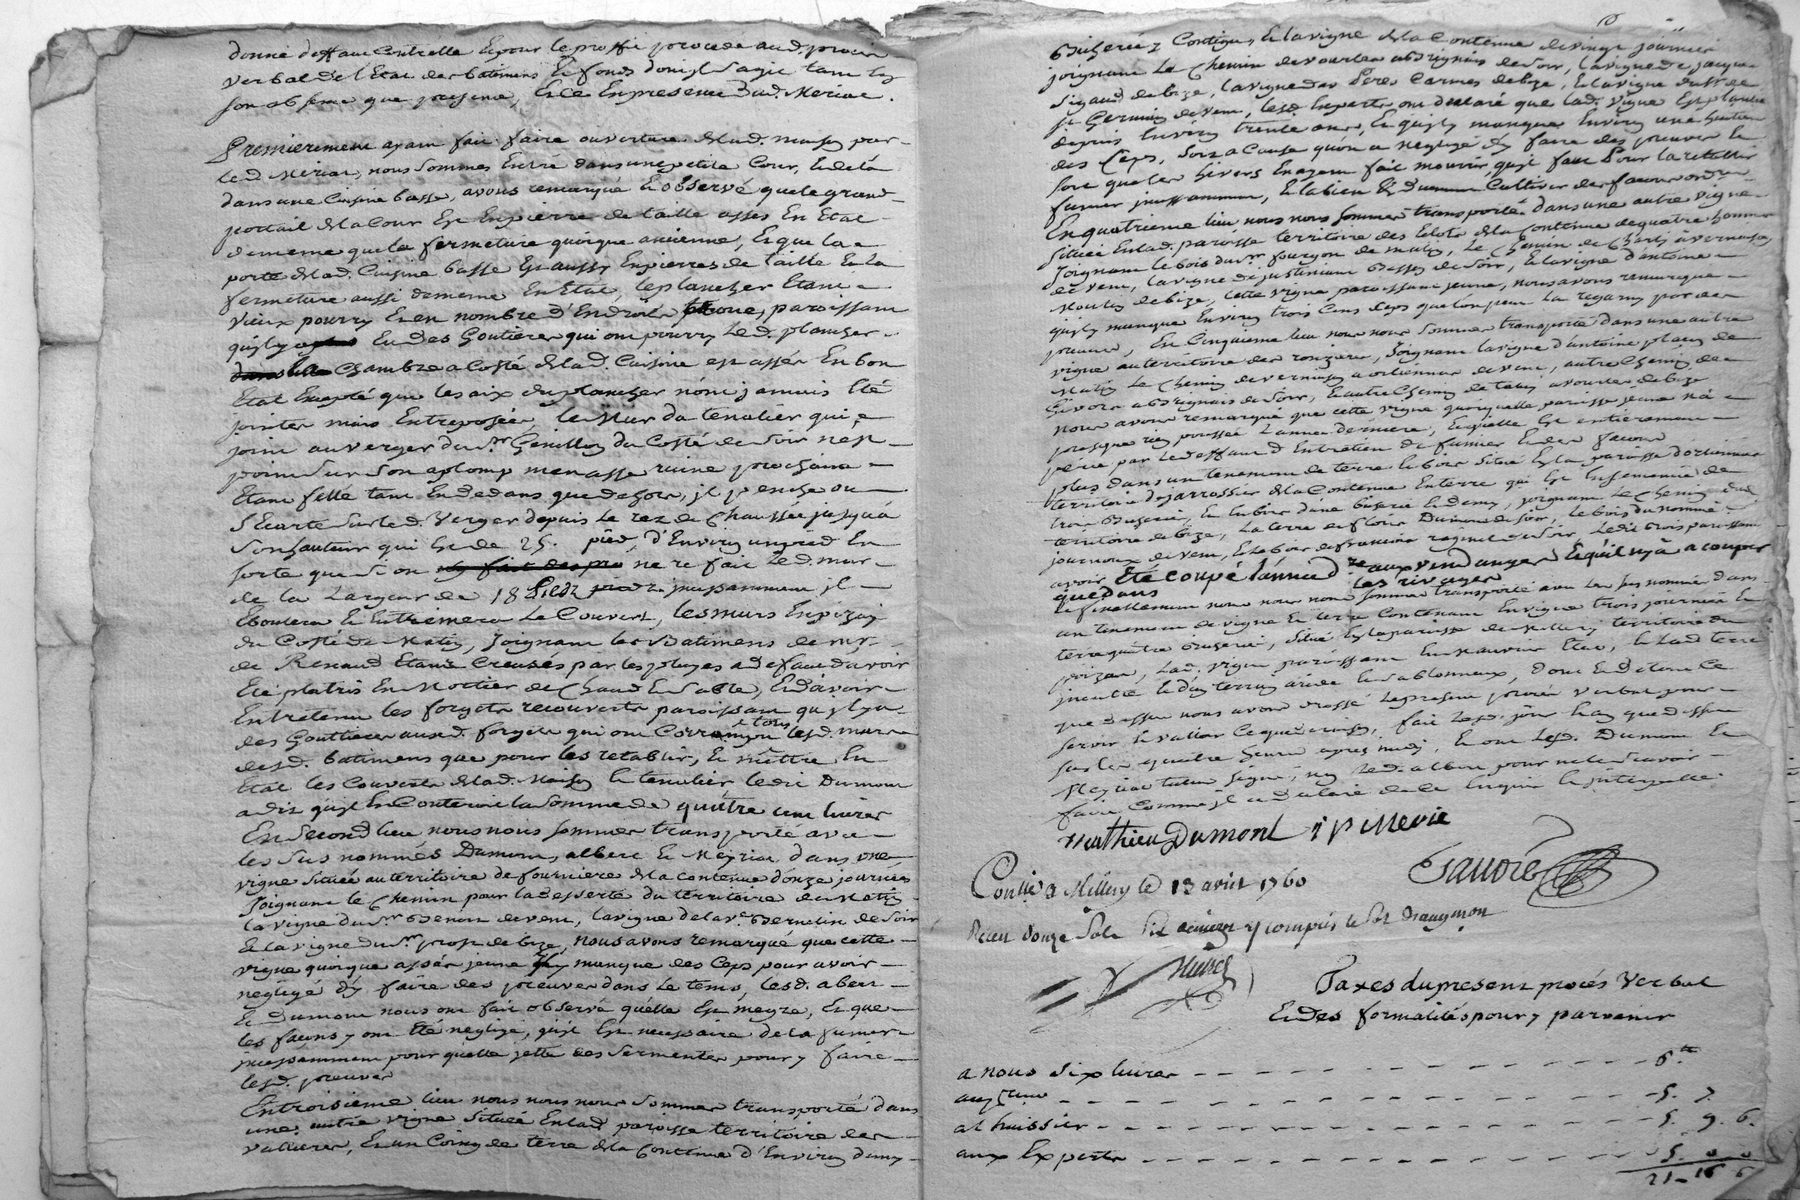 donné deffaut contrelle Et pour le proffit procede aud. procès
verbal de l'Etat des batimens Et fonds dont Il Sagit tant en
son absence que presence, Et ce En presence dud. Meriac.
Premierement ayant fait faire ouverture de lad. maison par
led. Meriac, nous sommes Entré dans une petite Cour, Et de là
dans une Cuisine basse, avons remarqué Et observé que le grand
portail de la Cour Est En pierre de taille assés En Etat
de meme que la fermeture quoique ancienne, Et que la
porte de lad. Cuisine basse Est aussy En pierres de taille Et la
fermeture aussi de meme En Etat, le plancher Etant
vieux pourry Et en nombre d'Endroits troué, paroissant
qu'il y a Eu des Goutieres qui ont pourry led. plancher
la Chambre a Costé de lad. Cuisine est assés En bon
Etat Excepté que les aix du plancher n'ont jamais Eté
jointes mais Entreposées, le Mur du tenalier qui
joint au verger du Sr. Genillon du Costé de Soir n'est
point Sur Son aplomp menasse ruine prochaine
Etant fellé tant En dedans que dehors, il panche ou
S'Ecarte Sur led. Verger depuis le rez de Chaussée jusqu'a
Son hauteur qui Est de 25. pieds, d'Environ un pied En
sorte que si on ne refait led. mur
de la Largeur de 18 Pieds incessamment il
Eboulera Et Entrainera le Couvert, les murs En pizay
du Costé de Matin, Joignant les Batimens de Mr.
de Renaud Etants Creusés par les pluyes a defaut d'avoir
Eté platris En Mortier de Chaud Et Sable, Et d'avoir
Entretenu les forgets recouverts paroissant qu'il y a
des Gouttieres auxd. forgets qui ont Corrompu Et tous lesd. murs
desd. batimens que pour les retablir, Et mêttre En
Etat les Couverts de lad. Maison Et tenalier led. Dumont
a dit qu'il En Couteroit la Somme de quattre cent livres
En Second lieu nous nous sommes transporté avec
les Sus nommés Dumont, albert Et Meyriac dans une
vigne située au territoire de fourniere de la contenue d'onze journées
Joignant le Chemin pour la desserte du territoire de Matin
la vigne du Sr. Benon de vent, la vigne de la ve. Bernetin de Soir
Et la vigne du Sr. prost de bize, nous avons remarqué que cette
vigne quoique assés jeune Il y manque des Ceps pour avoir
negligé d'y faire des preuves dans le tems, lesd. albert
Et Dumont nous ont fait observé qu'elle Est maigre, Et que
les façons y ont Eté negligé, qu'il Est necessaire de la fumer
incessamment pour qu'elle jette des Sermentes pour y faire
lesd. preuves
En troisieme lieu nous nous sommes transporté dans
une autre vigne Située En lad. paroisse territoire des
vallieres, Et un Coing de terre de la Contenue d'Environ demy
Bicherée y Contigue, Et la vigne de la Contenue de vingt journées
joignant le Chemin de vourles a Brignais de Soir, la vigne de jacque
Sigaud de bize, la vigne des Peres Carmes de bize, Et la vigne du Sr. de
St. Germain de vent, lesd. Experts ont declaré que lad. vigne Est plantée
depuis Environ trente ans, Et qu'il y manque Environ une huitieme
des Ceps, Soit a Cause qu'on a negligé d'y faire des preuves Ou
soit que les hivers En ayent fait mourir, qu'il faut Pour la retablir
fumer incessamment, Et la bien Et duement Cultiver des façons ordres.
En quatrieme lieu nous nous sommes transporté dans une autre vigne
Située En lad. paroisse territoire des Eclots de la Contenue de quatre hommes
Joignant le bois du Sr. fourgon de matin, le Chemin de Charly à vernaison
de vent, la vigne de justinien Basset de Soir, Et la vigne d'antoine
Moulin de bize, cette vigne paroissant jeune, nous avons remarqué
qu'il y manque Environ trois Cens Ceps que l'on peut La regarnir par des
preuves, En Cinquieme lieu nous nous sommes transporté dans une autre
vigne au territoire des ronzieres, Joignant la vigne d'antoine plany de
Matin Le Chemin de vernaison a orliennas de vent, autre Chemin de
Givors a Brignais de Soir, Et autre Chemin de taluy a vourles de bize
nous avons remarqué que cette vigne quoiqu'elle paroisse jeune n'a
presque rien poussée L'année derniere, Et qu'elle Est entierement
perie par le deffaut d'Entretien de fumier Et des façons
plus dans un tenement de terre Et bois Situé En la paroisse d'orliennas
territoire de jarrossier de la Contenue En terre qui Est Ensemencée de
trois Bicherées, Et En bois d'une bicherée Et demy, joignant le Chemin dud.
territoire de bize, La terre de fleurie Dumont de Soir, le bois du nommé
journoux de vent, Et le bois de françois raymet de Soir, ledit bois paroissant
avoir Eté coupé l'année dre. aux vendanges Et qu'il n'y a a couper
que dans les rivages
Et finallement nous nous sommes transporté avec les sus nommés dans
un tenement de vigne Et terre Contenant En vigne trois journées Et
terre quatre bicherées, Situé En la paroisse de Millery territoire du
poizat, Lad. vigne paroissant En mauvais Etat, Et Lad. terre
inculte Et d'un terrin aride Et Sablonneux, dont Et de tout Ce
que dessus nous avons dressé Le present procès verbal pour
servir Et valloir Ce que de raison, fait Lesd. jour Et an que dessus
sur les quattre heures apres midy, Et ont Lesd. Dumont Et
Meyriac tuteur signé, non Led. albert pour ne le Savoir
faire Comme il a declaré de ce Enquis Et Interpellé.
Mathieu Dumont i P Merie
Gauoré
Conllé a Millery le 13 avril 1760
Receu douze Sols Six deniers y compris le Sol d'augmon
Taxes du present procés Verbal
Et des formalités pour y parvenir
a nous six livres - - - 6.tt
au greffier - - - 5. 7.
a l'huissier - - - 5. 9. 6.
aux Experts - - - 5. 0 0
21 - 16 6